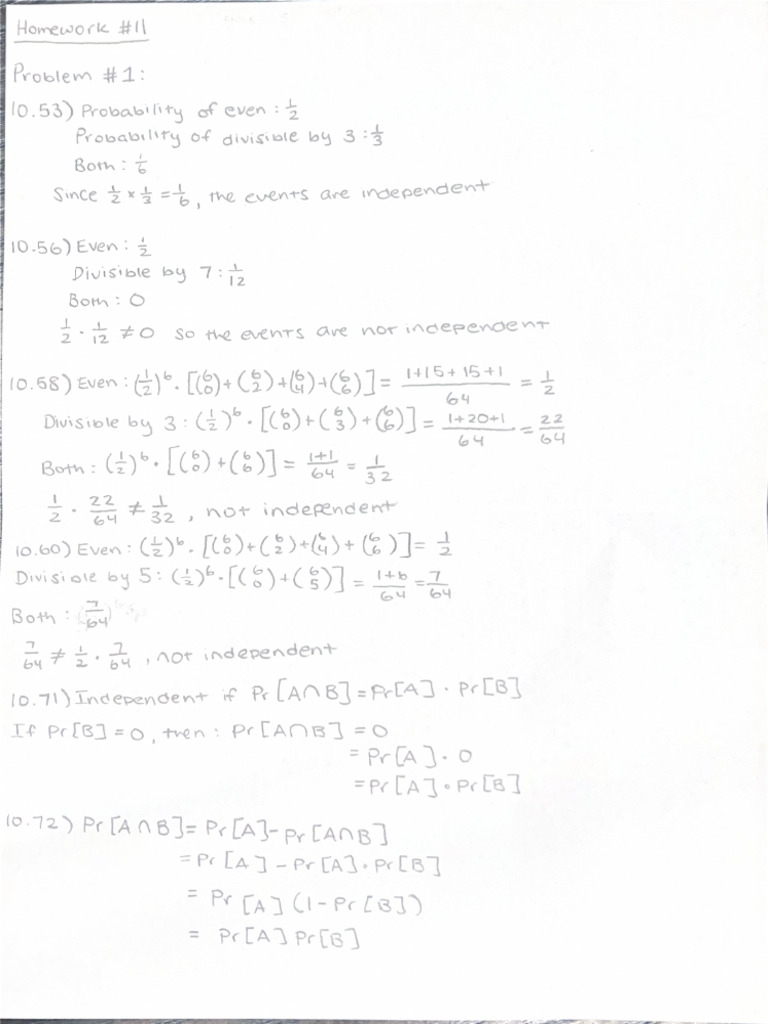 Homework #11
Problem #1:
10.53) Probability of even : 1/2
Probability of divisible by 3 : 1/3
Both : 1/6
Since 1/2 × 1/3 = 1/6, the events are independent
10.56) Even : 1/2
Divisible by 7 : 1/12
Both : 0
1/2 · 1/12 ≠ 0 so the events are not independent
10.58) Even : (1/2)^6 · [(6 0) + (6 2) + (6 4) + (6 6)] = (1+15+15+1)/64 = 1/2
Divisible by 3 : (1/2)^6 · [(6 0) + (6 3) + (6 6)] = (1+20+1)/64 = 22/64
Both : (1/2)^6 · [(6 0) + (6 6)] = (1+1)/64 = 1/32
1/2 · 22/64 ≠ 1/32, not independent
10.60) Even : (1/2)^6 · [(6 0) + (6 2) + (6 4) + (6 6)] = 1/2
Divisible by 5 : (1/2)^6 · [(6 0) + (6 5)] = (1+6)/64 = 7/64
Both : 7/64
7/64 ≠ 1/2 · 7/64, not independent
10.71) Independent if Pr[A∩B] = Pr[A] · Pr[B]
If Pr[B] = 0, then : Pr[A∩B] = 0
= Pr[A] · 0
= Pr[A] · Pr[B]
10.72) Pr[A∩B] = Pr[A] - Pr[A∩B]
= Pr[A] - Pr[A] · Pr[B]
= Pr[A] (1 - Pr[B])
= Pr[A] Pr[B]